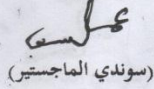 (سوندي الماجستير)